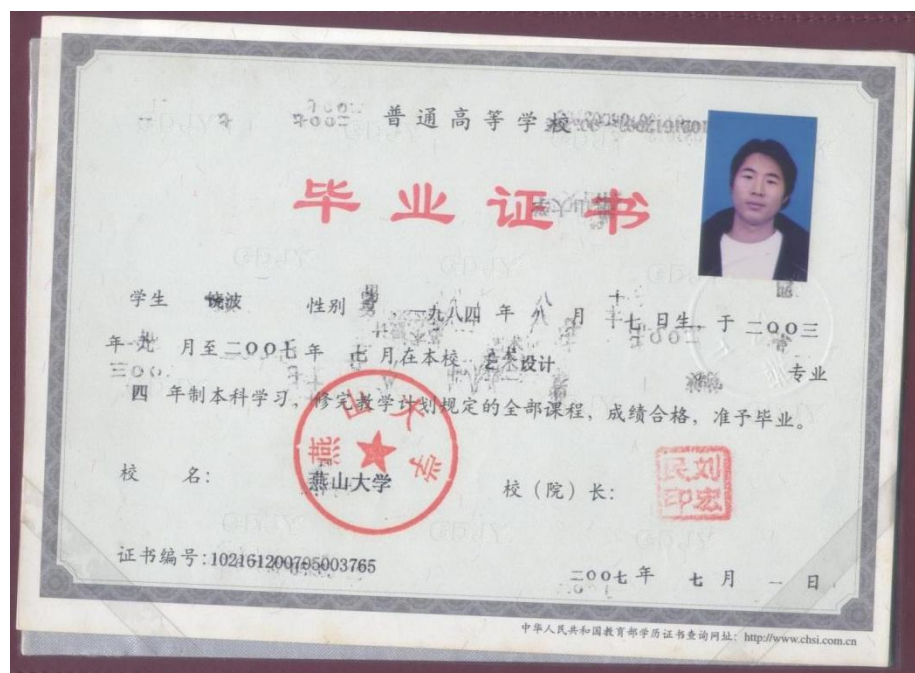 普通高等学校
毕业证书
学生 饶波 性别 男，一九八四年 八 月 十七 日生，于二〇〇三
年 九 月至二〇〇七年 七 月在本校 艺术设计 专业
四 年制本科学习，修完教学计划规定的全部课程，成绩合格，准予毕业。
燕山大学
校 名： 燕山大学 校（院）长： 刘宏民印
证书编号：102161200705003765
二〇〇七年 七 月 一 日
中华人民共和国教育部学历证书查询网址：http://www.chsi.com.cn